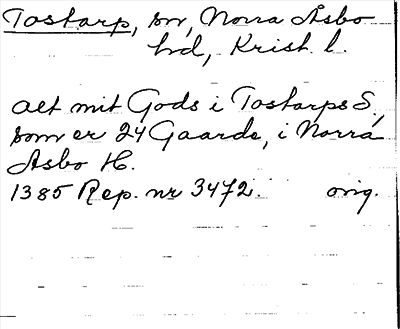 Tostarp, sn, Norra Åsbo
hd, Krist. l.
alt mit Gods i Tostorps S,
som er 24 Gaarde, i Norra
Asbo H.
1385 Rep. nr 3472. orig.